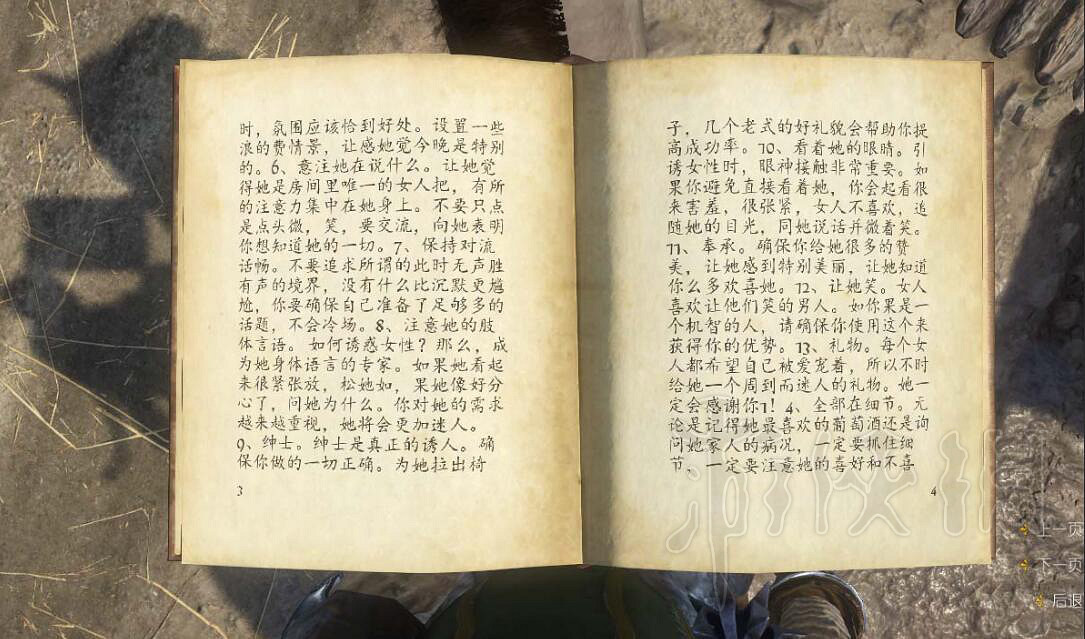 时，氛围应该恰到好处。设置一些
浪的费情景，让感她觉今晚是特别
的。6、意注她在说什么。让她觉
得她是房间里唯一的女人把，有所
的注意力集中在她身上。不要只点
是点头微，笑，要交流，向她表明
你想知道她的一切。7、保持对流
话畅。不要追求所谓的此时无声胜
有声的境界，没有什么比沉默更尴
尬，你要确保自己准备了足够多的
话题，不会冷场。8、注意她的肢
体言语。如何诱惑女性？那么，成
为她身体语言的专家。如果她看起
来很紧张放，松她如，果她像好分
心了，问她为什么。你对她的需求
越来越重视，她将会更加迷人。
9、绅士。绅士是真正的诱人。确
保你做的一切正确。为她拉出椅
3
子，几个老式的好礼貌会帮助你提
高成功率。10、看着她的眼睛。引
诱女性时，眼神接触非常重要。如
果你避免直接看着她，你会起看很
来害羞，很张紧，女人不喜欢，追
随她的目光，同她说话并微着笑。
11、奉承。确保你给她很多的赞
美，让她感到特别美丽，让她知道
你么多欢喜她。12、让她笑。女人
喜欢让他们笑的男人。如你果是一
个机智的人，请确保你使用这个来
获得你的优势。13、礼物。每个女
人都希望自己被爱宠着，所以不时
给她一个周到而迷人的礼物。她一
定会感谢你1！4、全部在细节。无
论是记得她最喜欢的葡萄酒还是询
问她家人的病况，一定要抓住细
节，一定要注意她的喜好和不喜
4
上一页
下一页
后退